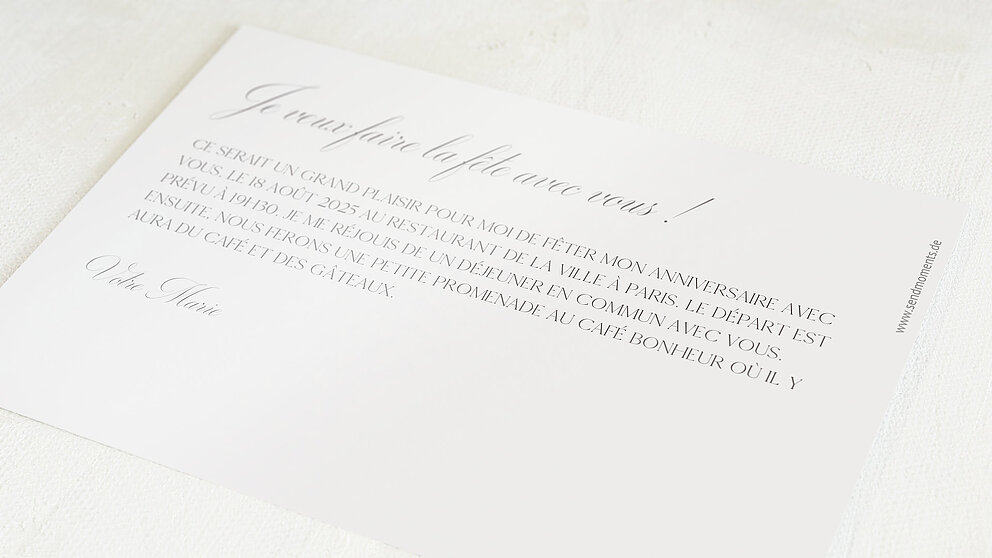 Je veux faire la fête avec vous !
CE SERAIT UN GRAND PLAISIR POUR MOI DE FÊTER MON ANNIVERSAIRE AVEC
VOUS, LE 18 AOÛT 2025 AU RESTAURANT DE LA VILLE À PARIS. LE DÉPART EST
PRÉVU À 19H30. JE ME RÉJOUIS DE UN DÉJEUNER EN COMMUN AVEC VOUS.
ENSUITE, NOUS FERONS UNE PETITE PROMENADE AU CAFÉ BONHEUR OÙ IL Y
AURA DU CAFÉ ET DES GÂTEAUX.
Votre Marie
www.sendmoments.de